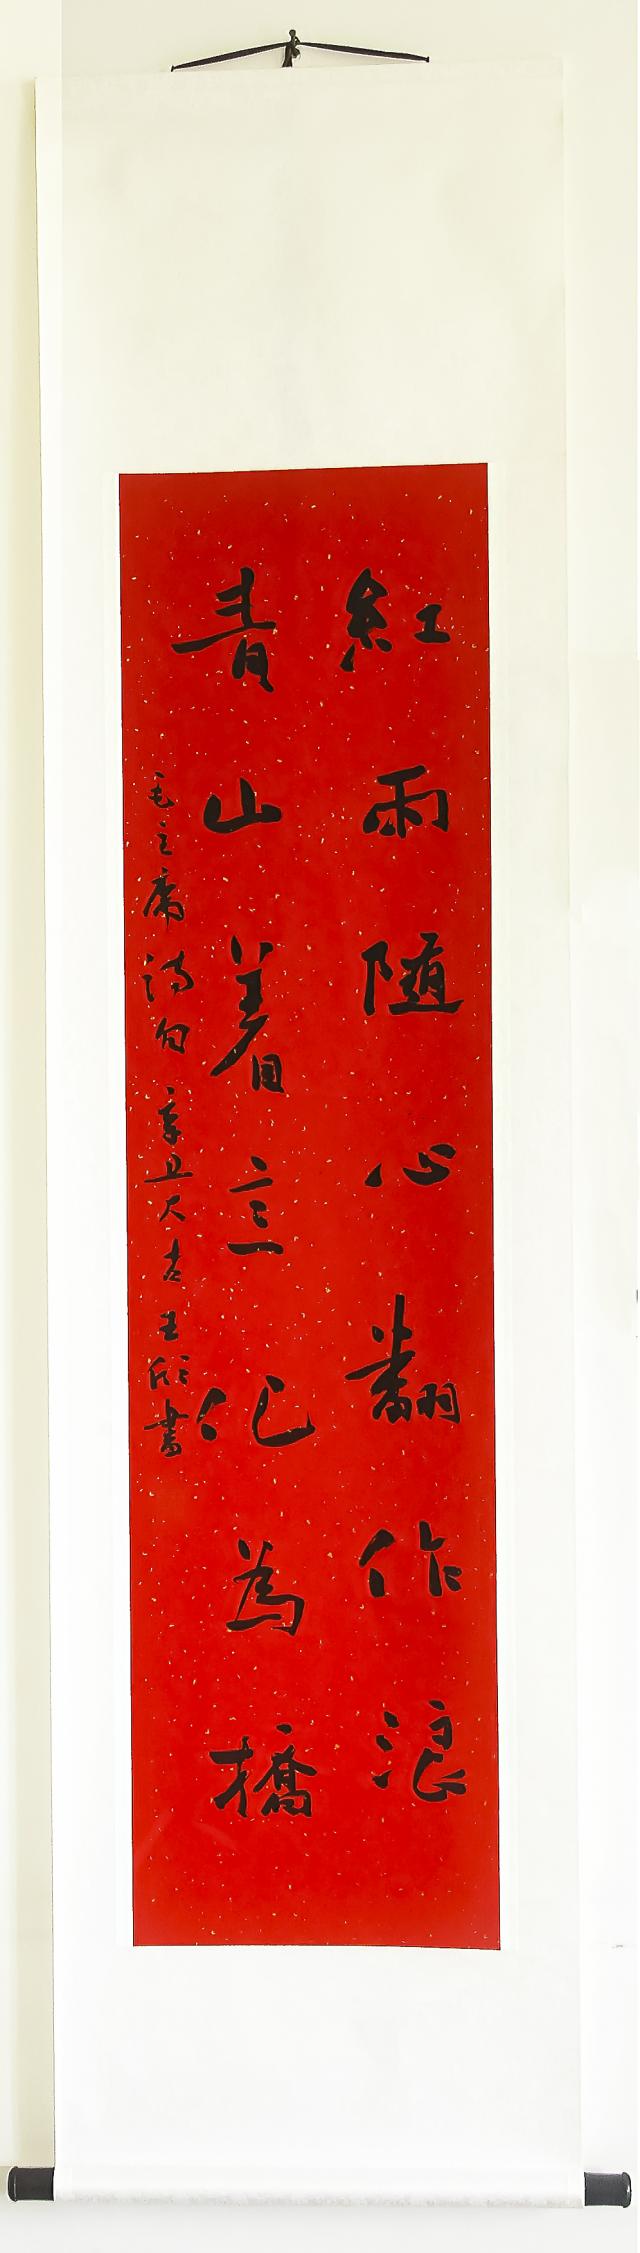 紅雨随心翻作浪
青山着意化為橋
毛主席詩句 辛丑大吉 王欣書